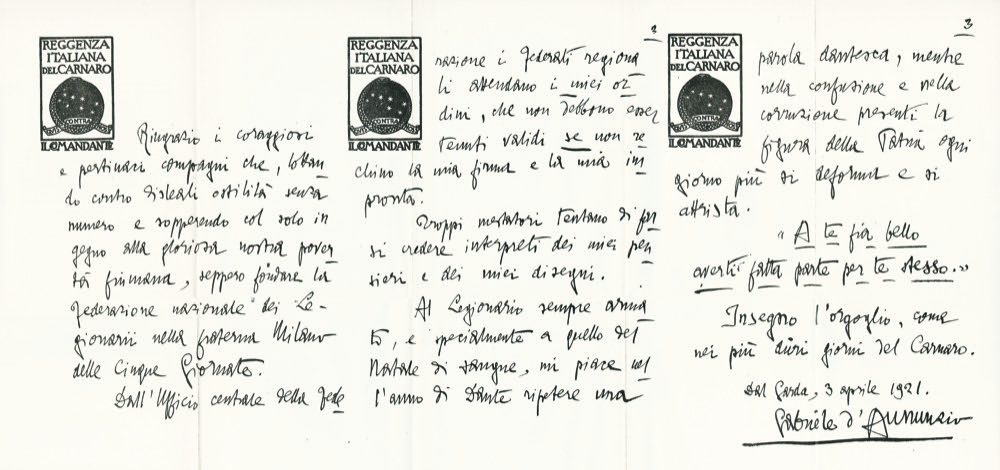 REGGENZA
ITALIANA
DEL CARNARO
CONTRA
IL COMANDANTE
Ringrazio i coraggiosi
e pertinaci compagni che, lottan
do contro disleali ostilità senza
numero e sopperendo col solo in
gegno alla gloriosa nostra pover
tà fiumana, seppero fondare la
Federazione nazionale dei Le-
gionarii nella fraterna Milano
delle Cinque Giornate.
Dall'Ufficio centrale della Fede
2
REGGENZA
ITALIANA
DEL CARNARO
CONTRA
IL COMANDANTE
razione i federati regiona
li attendano i miei or
dini, che non debbono esser
tenuti validi se non re
chino la mia firma e la mia im
pronta.
Troppi mestatori tentano di far
si credere interpreti dei miei pen
sieri e dei miei disegni.
Al Legionario sempre arma
to, e specialmente a quello del
Natale di sangue, mi piace nel
l'anno di Dante ripetere una
3
REGGENZA
ITALIANA
DEL CARNARO
CONTRA
IL COMANDANTE
parola dantesca, mentre
nella confusione e nella
corruzione presenti la
figura della Patria ogni
giorno più si deforma e si
attrista.
"A te fia bello
averti fatta parte per te stesso."
Insegno l'orgoglio, come
nei più duri giorni del Carnaro.
Dal Garda, 3 aprile 1921.
Gabriele d'Annunzio